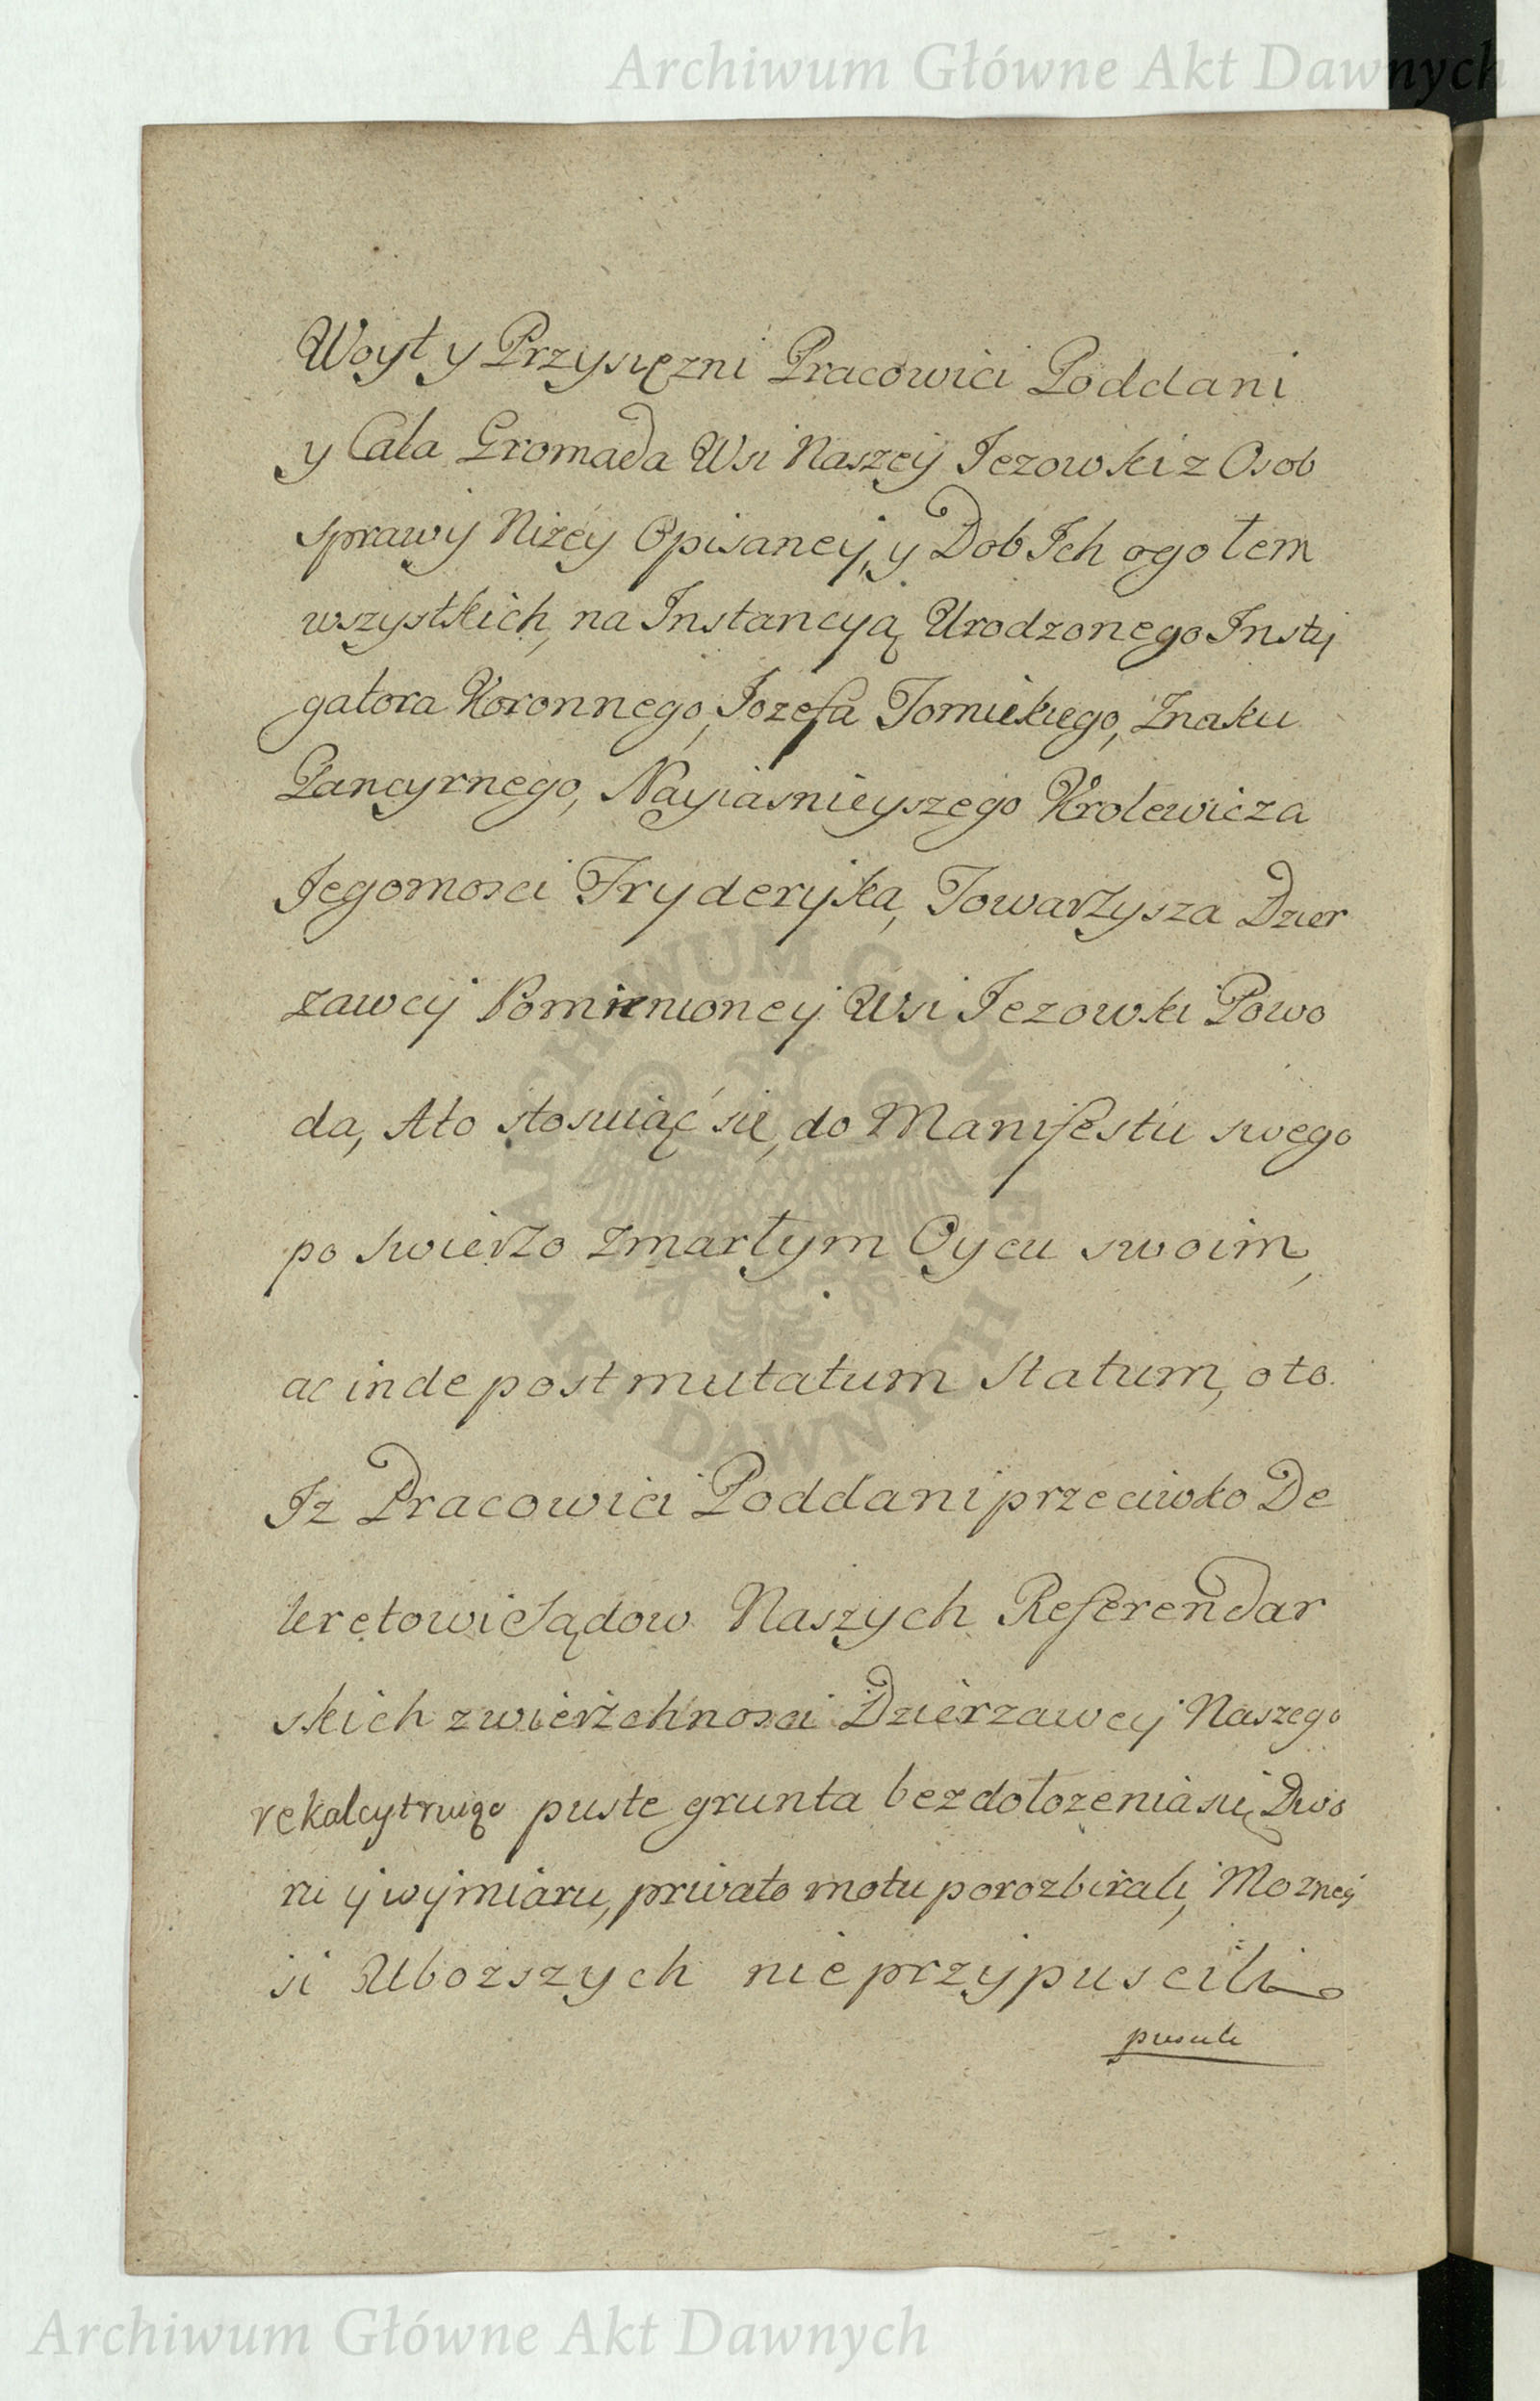 Archiwum Główne Akt Dawnych
Woyt y Przysięzni Pracowici Poddani
y Cała Gromada Wsi Naszey Jezowski z Osob
sprawy Niżey Opisaney, y Dob Ich ogołem
wszystkich, na Instancyą Urodzonego Insty
gatora Koronnego, Jozefa Tomickiego, Znaku
Pancyrnego, Nayiasnieyszego Krolewicza
Jegomosci Fryderyka, Towarzysza Dzier
zawcy Pomienioney Wsi Jezowski Powo
da, Ato stosuiąć się, do Manifestu swego
po swierzo zmarłym Oycu swoim,
ac inde post mutatum Statum, oto
Iz Pracowici Poddani przeciwko De
kretowi Sądow Naszych Referendar
skich zwierzchnosci Dzierzawcy Naszego
rekalcytruiąc puste grunta bez dołozenia się Dwo
ru y wymiaru, privato motu porozbirali, Mozney
si Uboższych nie przypuscili
ARCHIWUM GŁÓWNE
AKT DAWNYCH
Archiwum Główne Akt Dawnych